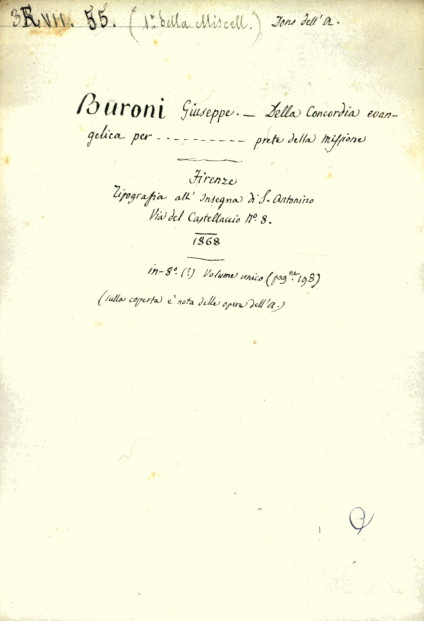 3R. VII. 55. (1ª della Miscell.) Dono dell'A.
Buroni Giuseppe. — Della Concordia evan-
gelica per ---------- prete della Missione
Firenze
Tipografia all' Insegna di S. Antonino
Via del Castellaccio Nº. 8.
1868
in-8º. (!) Volume unico (pagne. 198)
(sulla coperta è nota delle opere dell'A.)